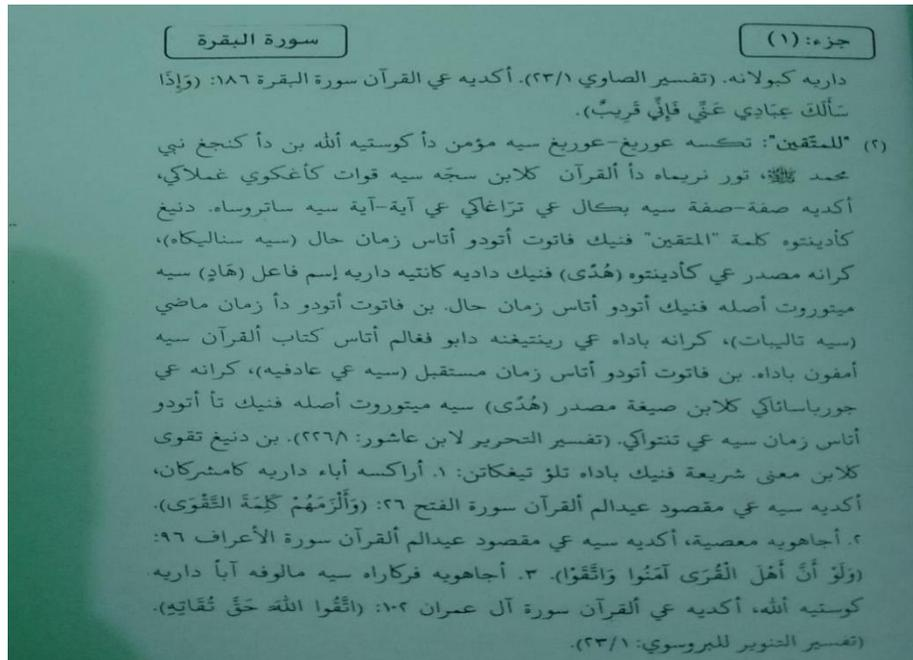 جزء: (١)
سورة البقرة
داريه كبولانه. (تفسير الصاوي ٢٣/١). أكديه عي القرآن سورة البقرة ١٨٦: (وَإِذَا
سَأَلَكَ عِبَادِي عَنِّي فَإِنِّي قَرِيبٌ).
(٢) "للمتّقين": تكسه عوريغ-عوريغ سيه مؤمن دأ كوستيه ألله بن دأ كنجغ نبي
محمد ﷺ، تور نريماه دأ ألقرآن كلابن سجّه سيه قوات كأغكوي غملاكي،
أكديه صفة-صفة سيه بكال عي ترّاغاكي عي آية-آية سيه ساتروساه. دنيغ
كأدينتوه كلمة "المتقين" فنيك فاتوت أتودو أتاس زمان حال (سيه سناليكاه)،
كرانه مصدر عي كأدينتوه (هُدًى) فنيك داديه كانتيه داريه إسم فاعل (هَادٍ) سيه
ميتوروت أصله فنيك أتودو أتاس زمان حال. بن فاتوت أتودو دأ زمان ماضي
(سيه تاليبات)، كرانه باداه عي رينتيغنه دابو فغالم أتاس كتاب ألقرآن سيه
أمفون باداه. بن فاتوت أتودو أتاس زمان مستقبل (سيه عي عادفيه)، كرانه عي
جورباساثاكي كلابن صيغة مصدر (هُدًى) سيه ميتوروت أصله فنيك تأ أتودو
أتاس زمان سيه عي تنتواكي. (تفسير التحرير لابن عاشور: ٢٢٦/١). بن دنيغ تقوى
كلابن معنى شريعة فنيك باداه تلؤ تيغكاتن: ١. أراكسه أباء داريه كامشركان،
أكديه سيه عي مقصود عيدالم ألقرآن سورة الفتح ٢٦: (وَأَلْزَمَهُمْ كَلِمَةَ التَّقْوَى).
٢. أجاهويه معصية، أكديه سيه عي مقصود عيدالم ألقرآن سورة الأعراف ٩٦:
(وَلَوْ أَنَّ أَهْلَ الْقُرَى آمَنُوا وَاتَّقَوْا). ٣. أجاهويه فركاراه سيه مالوفه آبأ داريه
كوستيه ألله، أكديه عي ألقرآن سورة آل عمران ١٠٢: (اتَّقُوا اللهَ حَقَّ تُقَاتِهِ).
(تفسير التنوير للبروسوي: ٢٣/١).